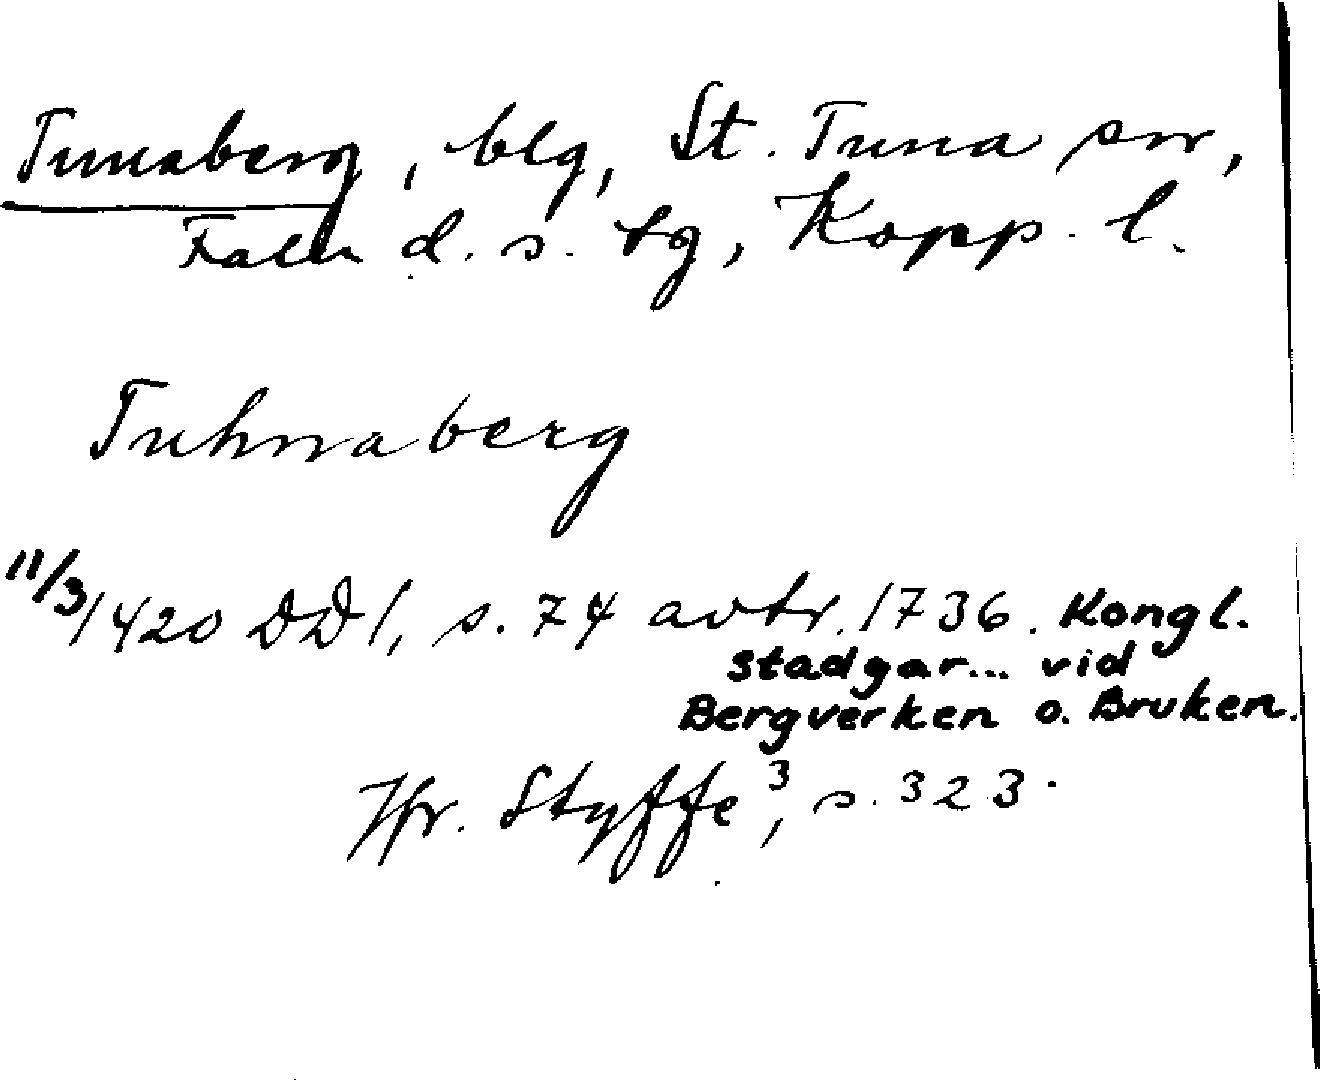 Tunaberg, blg, St. Tuna sn,
Falu d. s. tg, Kopp. l.
Tuhnaberg
11/3 1420 DD1, s. 74 avtr. 1736. Kongl.
stadgar... vid
Bergverken o. Bruken.
Jfr. Styffe³, s. 323.